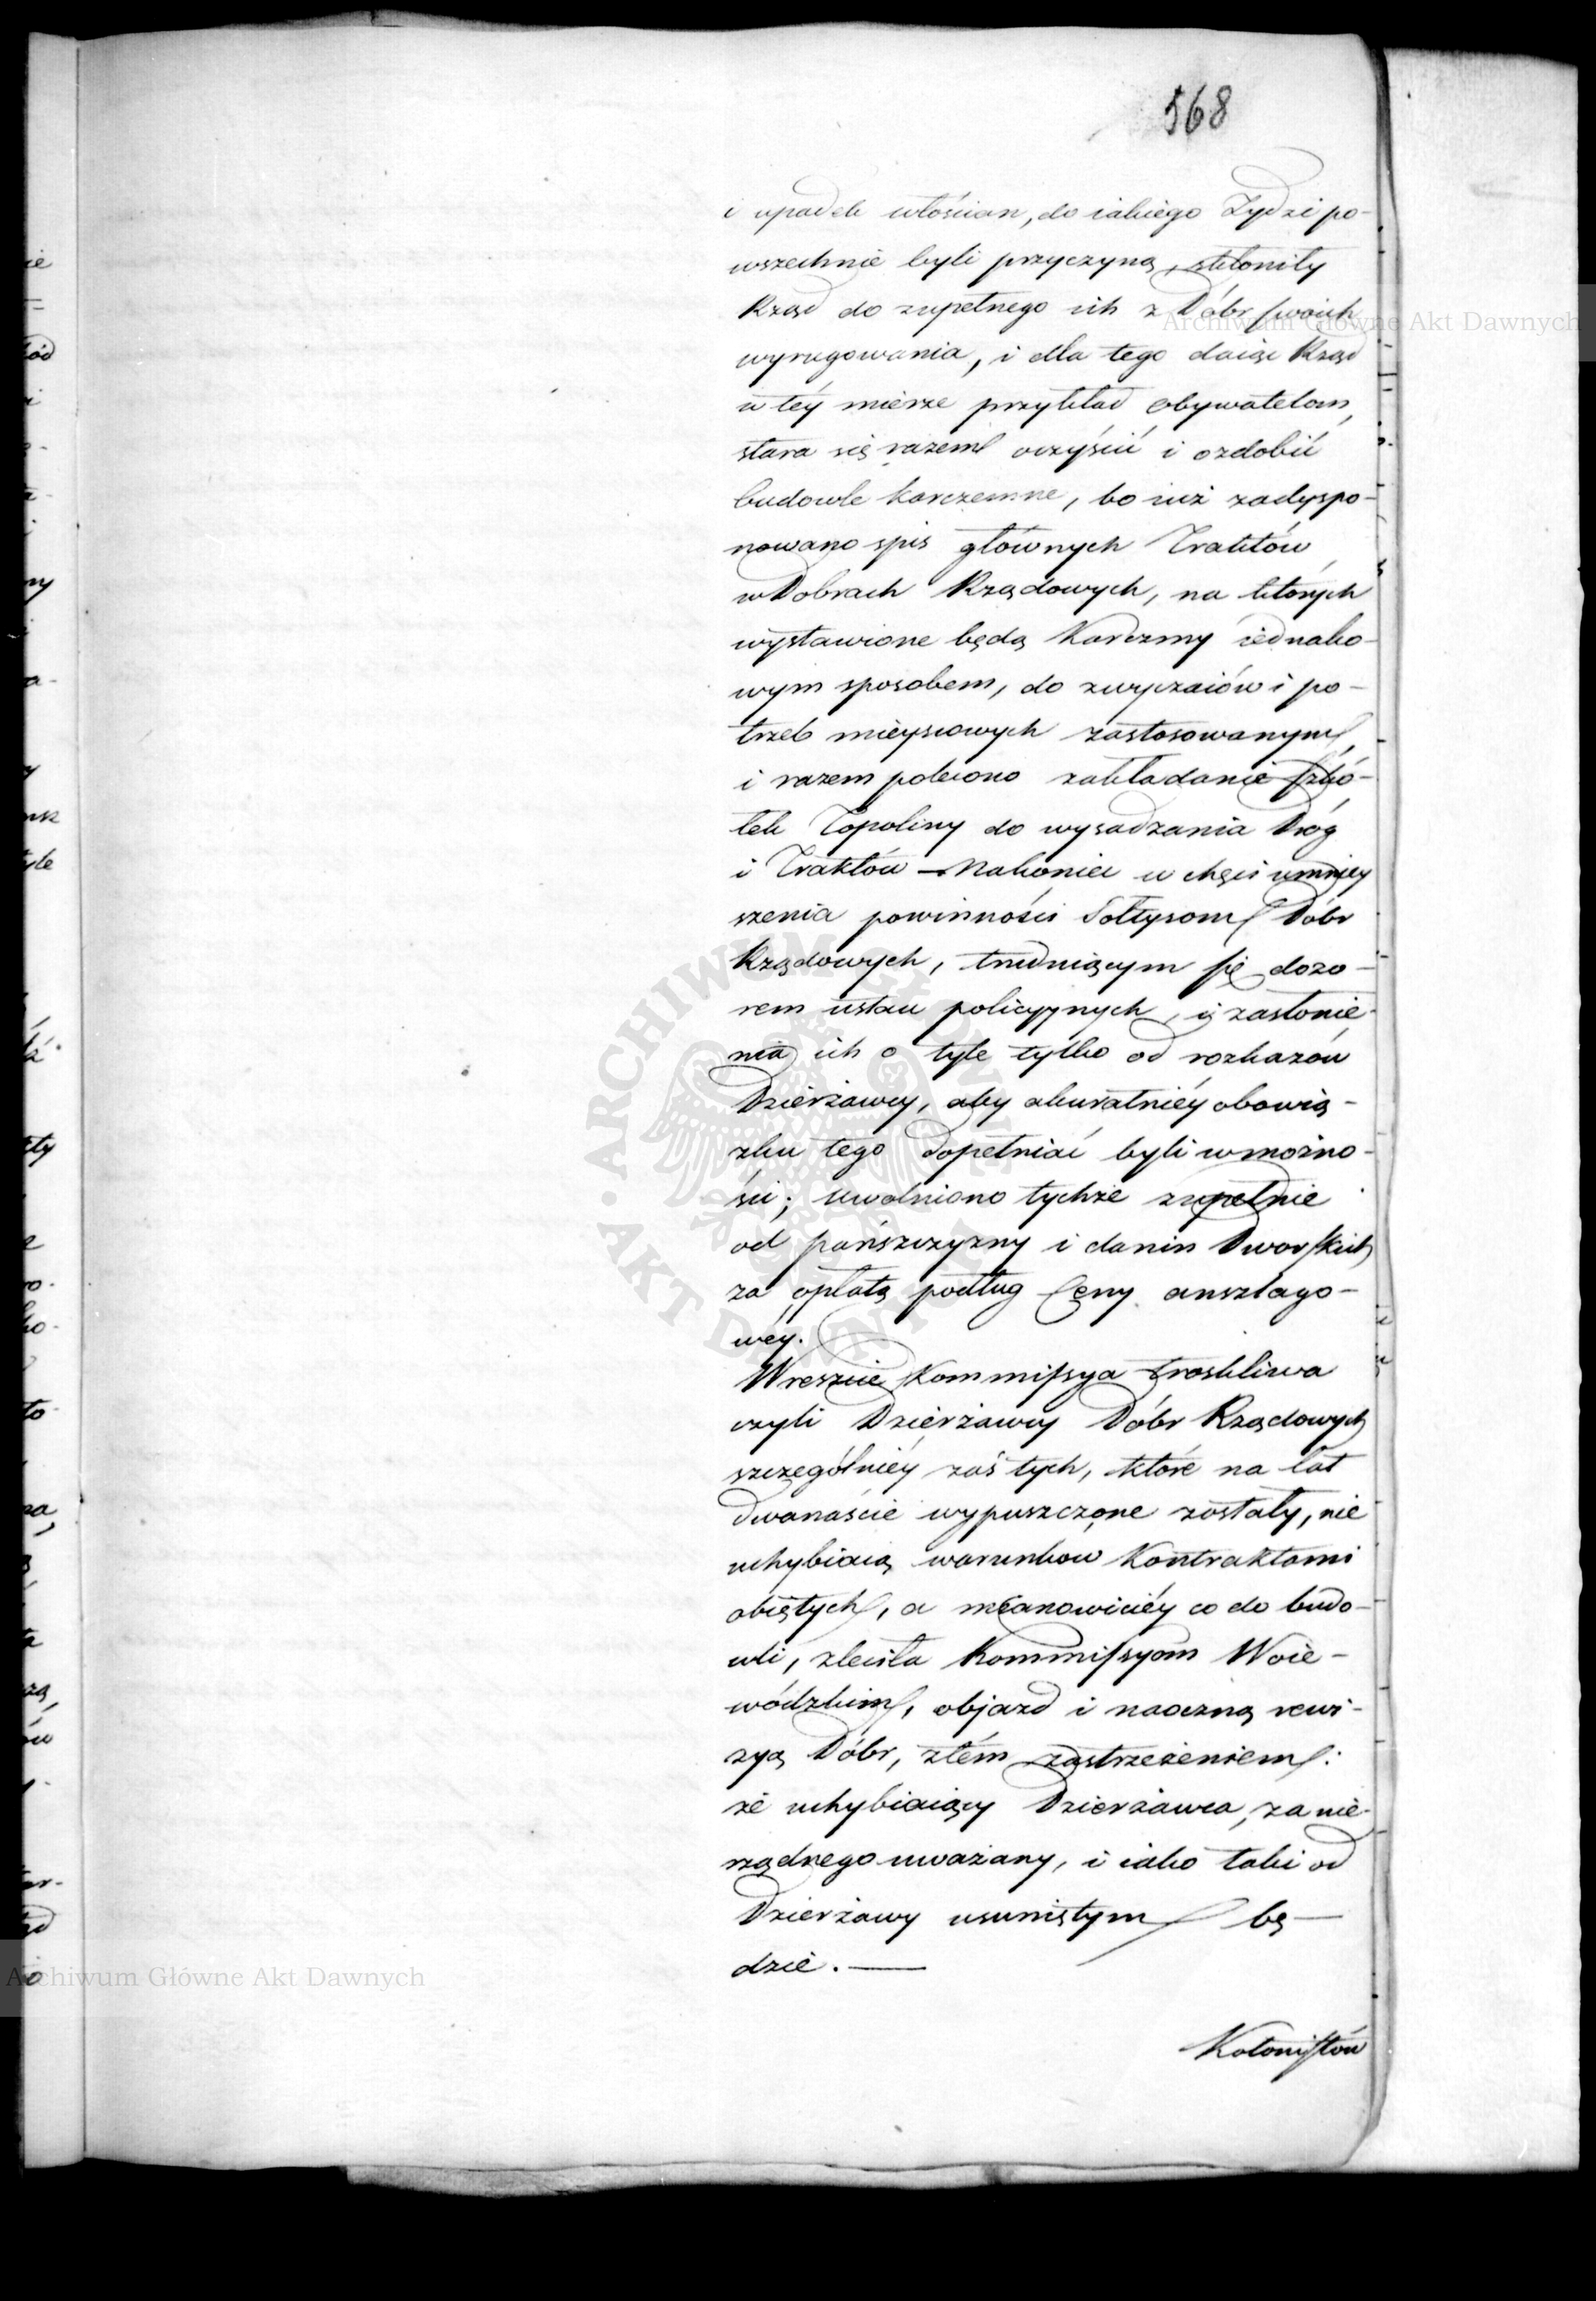 568
i upadek włościan, do iakiego Żydzi po-
wszechnie byli przyczyną, skłoniły
Rząd do zupełnego ich z Dóbr swoich
wyrugowania, i dla tego daiąc Rząd
w téy mierze przykład obywatelom,
stara się razem oczyścić i ozdobić
budowle karczemne, bo iuż zadyspo-
nowano spis głównych Traktów
w Dobrach Rządowych, na których
wystawione będą Karczmy iednako-
wym sposobem, do zwyczaiów i po-
trzeb mieyscowych zastosowanym,
i razem polecono zakładanie szkó-
łek Topoliny do wysadzania Dróg
i Traktów — Nakoniec w chęci umniey
szenia powinności Sołtysom Dóbr
Rządowych, trudniącym się dozo-
rem ustaw policyjnych, i zasłonie-
nia ich o tyle tylko od rozkazów
Dzierżawcy, aby akuratniéy obowią-
zku tego dopełniać byli w możno-
ści; uwolniono tychże zupełnie
od pańszczyzny i danin Dworskich
za opłatą podług Ceny anszlago-
wéy.
Wreszcie Kommissya troskliwa
czyli Dzierżawcy Dóbr Rządowych
szczególniéy zaś tych, które na lat
dwanaście wypuszczone zostały, nie
uchybiaią warunków Kontraktami
obiętych, a mianowiciéy co do budo-
wli, zleciła Kommissyom Woie-
wódzkim, objazd i naoczną rewi-
zyą Dóbr, z tém zastrzeżeniem:
że uchybiaiący Dzierżawca, za nie-
rządnego uważany, i iako taki od
Dzierżawy usuniętym bę-
dzie. —
Kolonistów
Archiwum Główne Akt Dawnych
Archiwum Główne Akt Dawnych